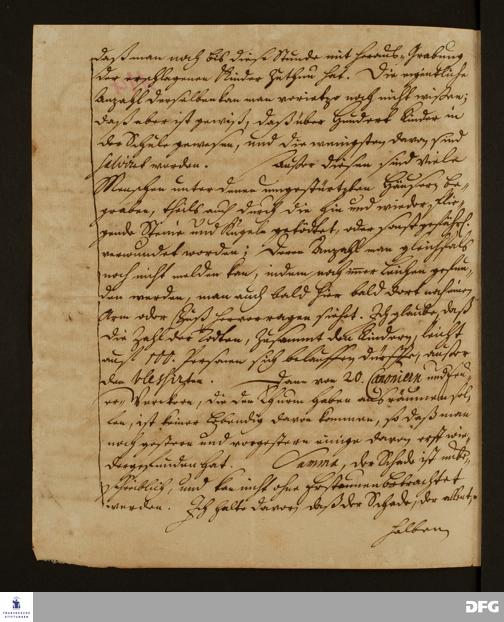 daß man noch bis diese Stunde mit heraus-Grabung
der erschlagenen Kinder zuthun hat. Die eigentliche
Anzahl derselben kan man vorietzo noch nicht wißen;
daß aber ist gewiß, daß über hundert Kinder in
der Schule gewesen, und die wenigsten davon sind
salvirt worden. Außer diesen sind viele
Menschen unter denen umgestürtzten Häusern be-
graben, theils auch durch die hin und wieder flie-
gende Steine und Kugeln getödtet, oder sonst gefährl.
verwundet worden; deren Anzahl man gleichfals
noch nicht melden kan, indem noch immer Leichen gefun-
den werden, man auch bald hier bald dort noch einen
Arm oder Fuß hervorragen siehet. Ich glaube, daß
die Zahl der Todten, zusammt den Kindern, leicht
auf 100. Personen sich belauffen dürffte, außer
den blessirten. Dann von 20. Canonirn und Feu-
er-Werckern, die den Thurm haben ausräumen sol-
len, ist keiner lebendig davon kommen, so daß man
noch gestern und vorgestern einige davon erst wie-
dergefunden hat. Summa, der Schade ist unbe-
schreiblich, und kan nicht ohne Erstaunen betrachtet
werden. Ich halte davor, daß der Schade, der
halben
FRANCKESCHE STIFTUNGEN
DFG